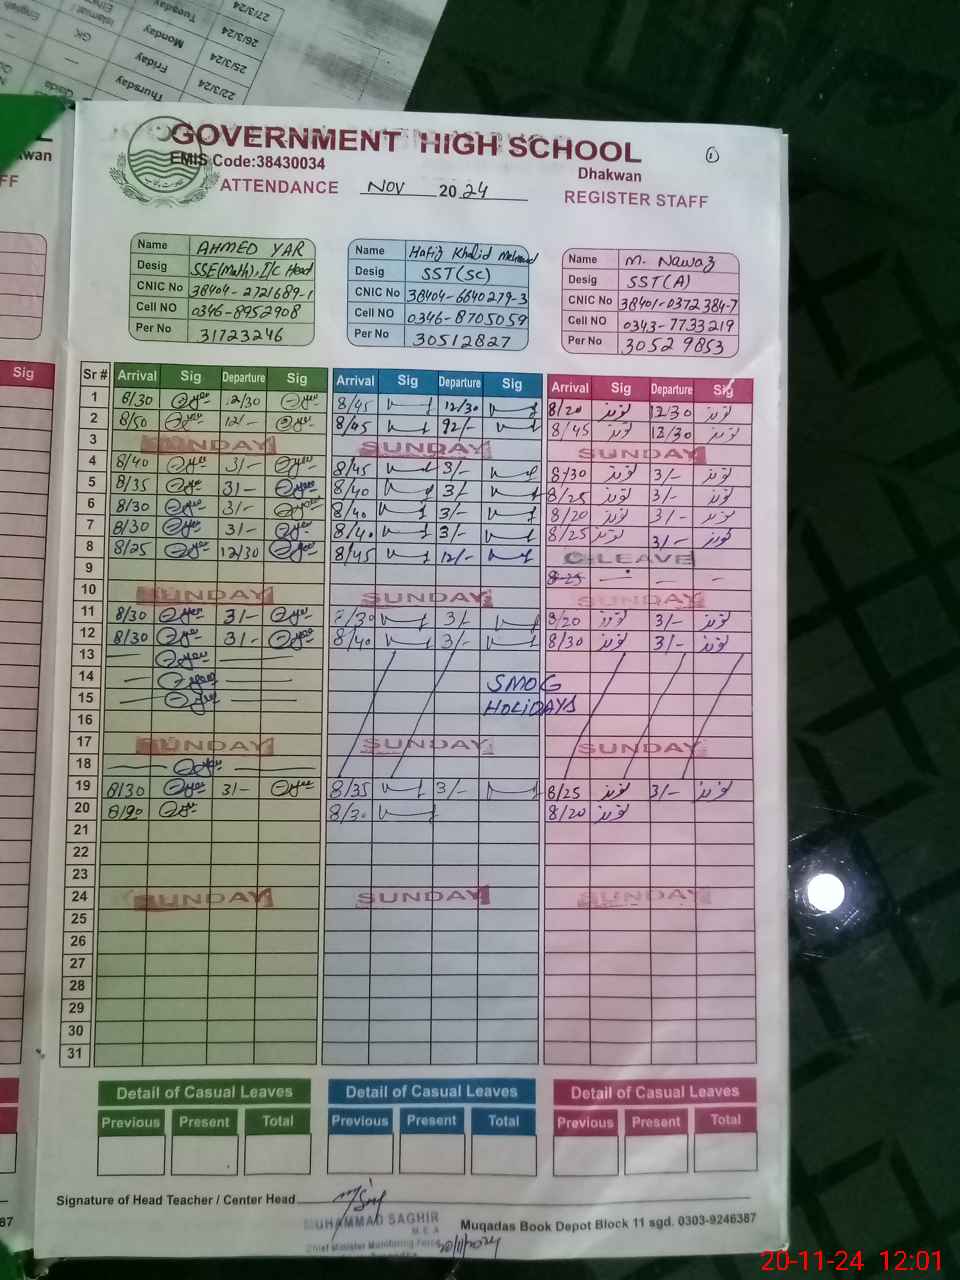 27/3/24
Tuesday
English
26/3/24
Monday
GK
25/3/24
Friday
22/3/24
Thursday
GOVERNMENT HIGH SCHOOL
EMIS Code:38430034
Dhakwan
ATTENDANCE Nov 2024
REGISTER STAFF
Name AHMED YAR
Desig SSE(Math), I/C Head
CNIC No 38404-2721689-1
Cell NO 0346-8952908
Per No 31723246
Name Hafiz Khalid Mehmood
Desig SST(SC)
CNIC No 38404-6640279-3
Cell NO 0346-8705059
Per No 30512827
Name M. Nawaz
Desig SST(A)
CNIC No 38401-0372384-7
Cell NO 0343-7733219
Per No 30529853
Sr # Arrival Sig Departure Sig Arrival Sig Departure Sig Arrival Sig Departure Sig
1 8/30 12/30 8/45 12/30 8/20 12/30
2 8/50 12/- 8/45 12/- 8/45 12/30
3 SUNDAY SUNDAY SUNDAY
4 8/40 3/- 8/45 3/- 8/30 3/-
5 8/35 3/- 8/40 3/- 8/25 3/-
6 8/30 3/- 8/40 3/- 8/20 3/-
7 8/30 3/- 8/40 3/- 8/25 3/-
8 8/25 12/30 8/45 12/- C-LEAVE
9 8-25
10 SUNDAY SUNDAY SUNDAY
11 8/30 3/- 8/30 3/- 8/20 3/-
12 8/30 3/- 8/40 3/- 8/30 3/-
13
14 SMOG
15 HOLIDAYS
16
17 SUNDAY SUNDAY SUNDAY
18
19 8/30 3/- 8/35 3/- 8/25 3/-
20 8/30 8/20
21
22
23
24 SUNDAY SUNDAY SUNDAY
25
26
27
28
29
30
31
Detail of Casual Leaves Detail of Casual Leaves Detail of Casual Leaves
Previous Present Total Previous Present Total Previous Present Total
Signature of Head Teacher / Center Head
MUHAMMAD SAGHIR
M.E.A
Chief Minister Monitoring Force
20/11/2024
Muqadas Book Depot Block 11 sgd. 0303-9246387
20-11-24 12:01